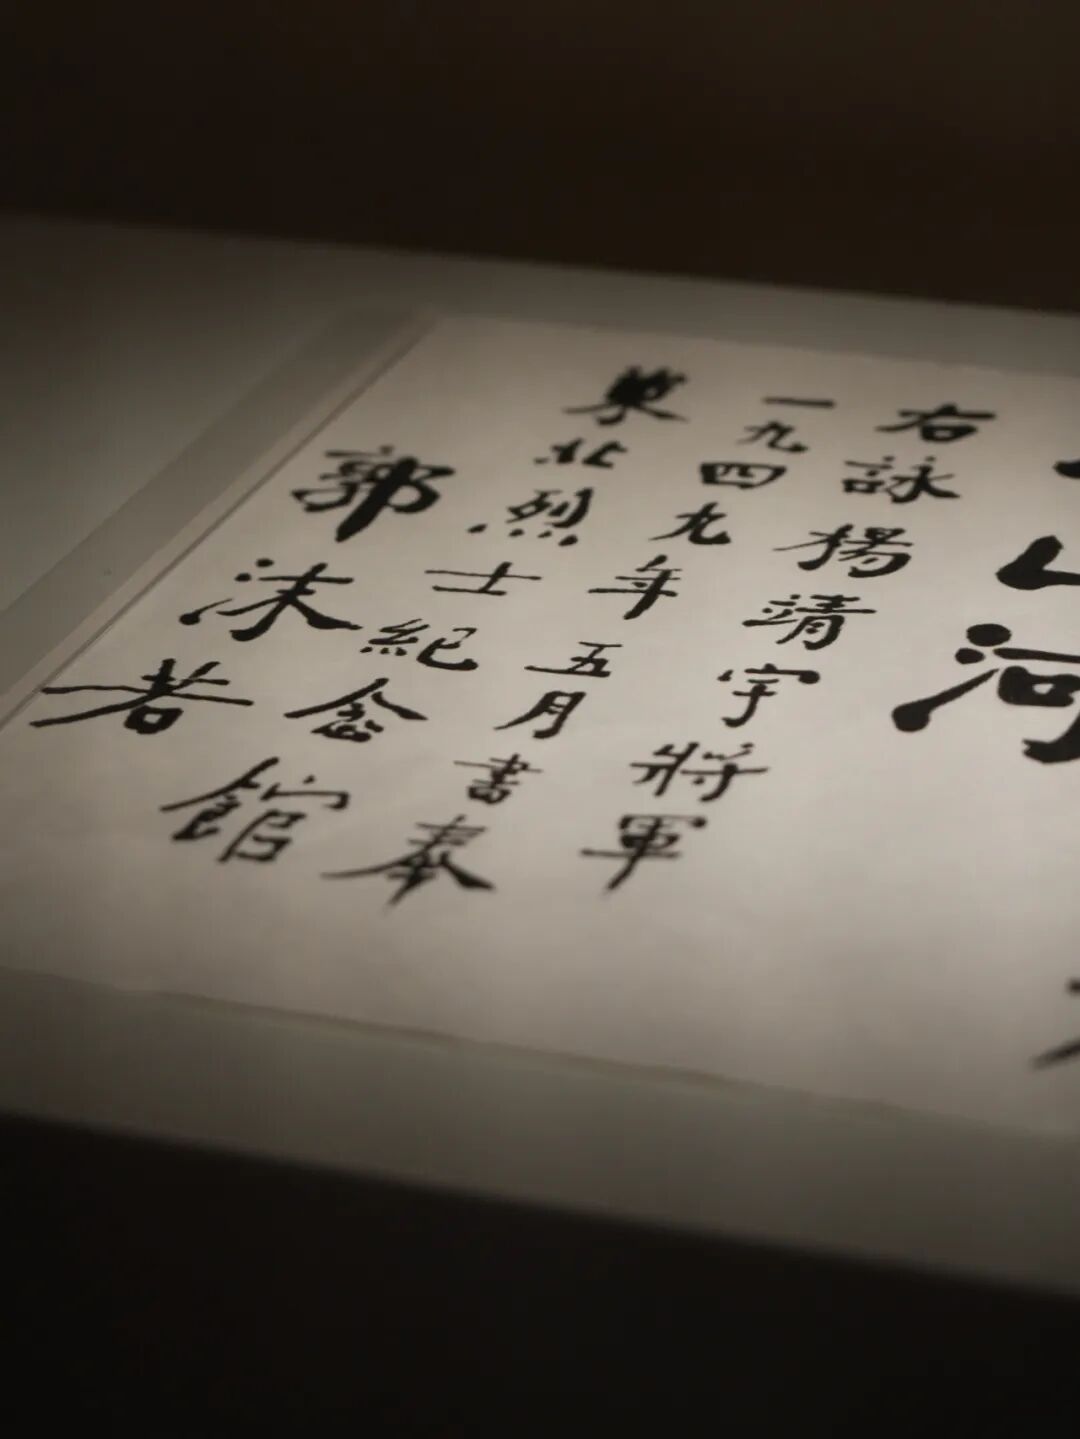 山河
右詠楊靖宇將軍
一九四九年五月書奉
東北烈士紀念館
郭沫若